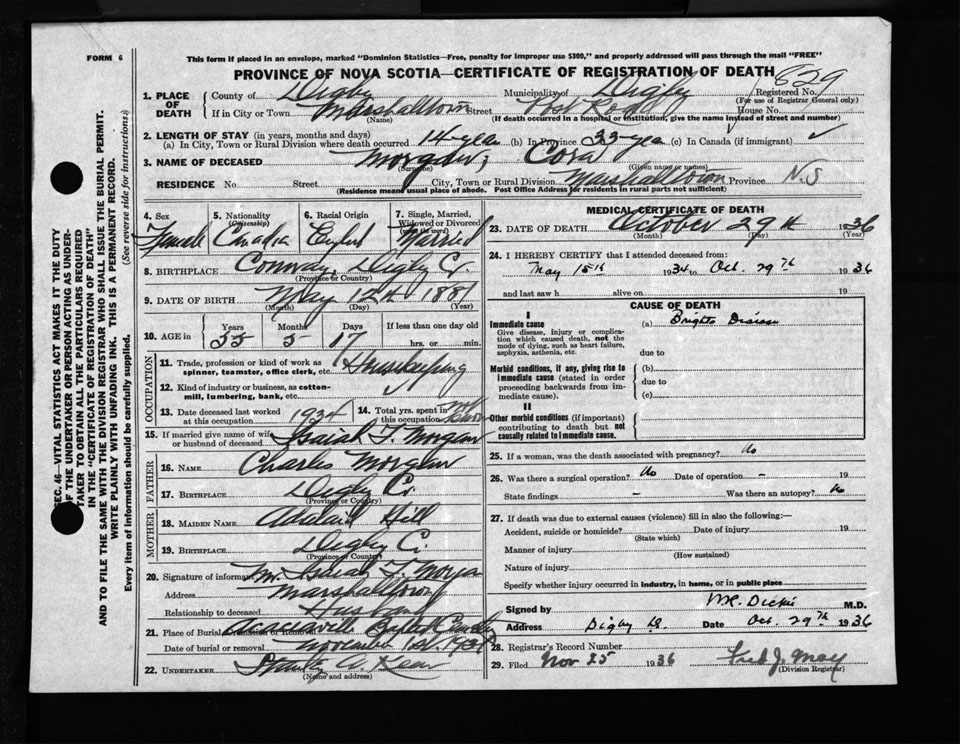 FORM 6
This form if placed in an envelope, marked "Dominion Statistics—Free, penalty for improper use $300," and properly addressed will pass through the mail "FREE"
PROVINCE OF NOVA SCOTIA—CERTIFICATE OF REGISTRATION OF DEATH
829
1. PLACE OF DEATH
County of Digby Municipality of Digby Registered No.
(For use of Registrar General only)
If in City or Town Marshalltown Street Post Road House No.
(Name) (If death occurred in a hospital or institution, give the name instead of street and number)
2. LENGTH OF STAY (in years, months and days)
(a) In City, Town or Rural Division where death occurred 14 year (b) In Province 33 yea (c) In Canada (if immigrant) ✓
3. NAME OF DECEASED Morgan, Cora
(Surname) (Given name or names)
RESIDENCE No. Street City, Town or Rural Division Marshalltown Province N.S
(Residence means usual place of abode. Post Office Address for residents in rural parts not sufficient)
4. Sex Female
5. Nationality (Citizenship) Canadia
6. Racial Origin English
7. Single, Married, Widowed or Divorced (write the word) Married
8. BIRTHPLACE Conway, Digby C.
(Province or Country)
9. DATE OF BIRTH May 12th 1881
(Month) (Day) (Year)
10. AGE in Years 55 Months 5 Days 17 If less than one day old
hrs. or min.
OCCUPATION
11. Trade, profession or kind of work as spinner, teamster, office clerk, etc. Housekeeping
12. Kind of industry or business, as cotton-mill, lumbering, bank, etc. ✓
13. Date deceased last worked at this occupation 1934
14. Total yrs. spent in this occupation
15. If married give name of wife or husband of deceased Isaiah F. Morgan
FATHER
16. NAME Charles Morgan
17. BIRTHPLACE Digby C.
(Province or Country)
MOTHER
18. MAIDEN NAME Adalaid Hill
19. BIRTHPLACE Digby C.
(Province or Country)
20. Signature of informant Mr. Isaiah F. Morga
Address Marshalltown
Relationship to deceased Husband
21. Place of Burial, Cremation or Removal Acaciaville Baptist
Date of burial or removal November 1st, 193
22. UNDERTAKER
(Name and address)
MEDICAL CERTIFICATE OF DEATH
23. DATE OF DEATH October 29th 1936
(Month) (Day) (Year)
24. I HEREBY CERTIFY that I attended deceased from:
May 15th 1934 to Oct. 29th 1936
and last saw h alive on 19
CAUSE OF DEATH
I
Immediate cause
Give disease, injury or complication which caused death, not the mode of dying, such as heart failure, asphyxia, asthenia, etc.
(a) Brights Disease
due to
Morbid conditions, if any, giving rise to immediate cause (stated in order proceeding backwards from immediate cause).
(b)
due to
(c)
II
Other morbid conditions (if important) contributing to death but not causally related to immediate cause.
25. If a woman, was the death associated with pregnancy? No
26. Was there a surgical operation? No Date of operation – 19
State findings – Was there an autopsy? No
27. If death was due to external causes (violence) fill in also the following:—
Accident, suicide or homicide? Date of injury 19
(State which)
Manner of injury
(How sustained)
Nature of injury
Specify whether injury occurred in industry, in home, or in public place
Signed by W.R. Dickie M.D.
Address Digby N.S. Date Oct. 29th 1936
28. Registrar's Record Number
29. Filed Nov 25 1936 Fred J. May
(Division Registrar)
SEC. 46—VITAL STATISTICS ACT MAKES IT THE DUTY
OF THE UNDERTAKER OR PERSON ACTING AS UNDER-
TAKER TO OBTAIN ALL THE PARTICULARS REQUIRED
IN THE "CERTIFICATE OF REGISTRATION OF DEATH"
AND TO FILE THE SAME WITH THE DIVISION REGISTRAR WHO SHALL ISSUE THE BURIAL PERMIT.
WRITE PLAINLY WITH UNFADING INK. THIS IS A PERMANENT RECORD.
Every item of Information should be carefully supplied. (See reverse side for instructions.)